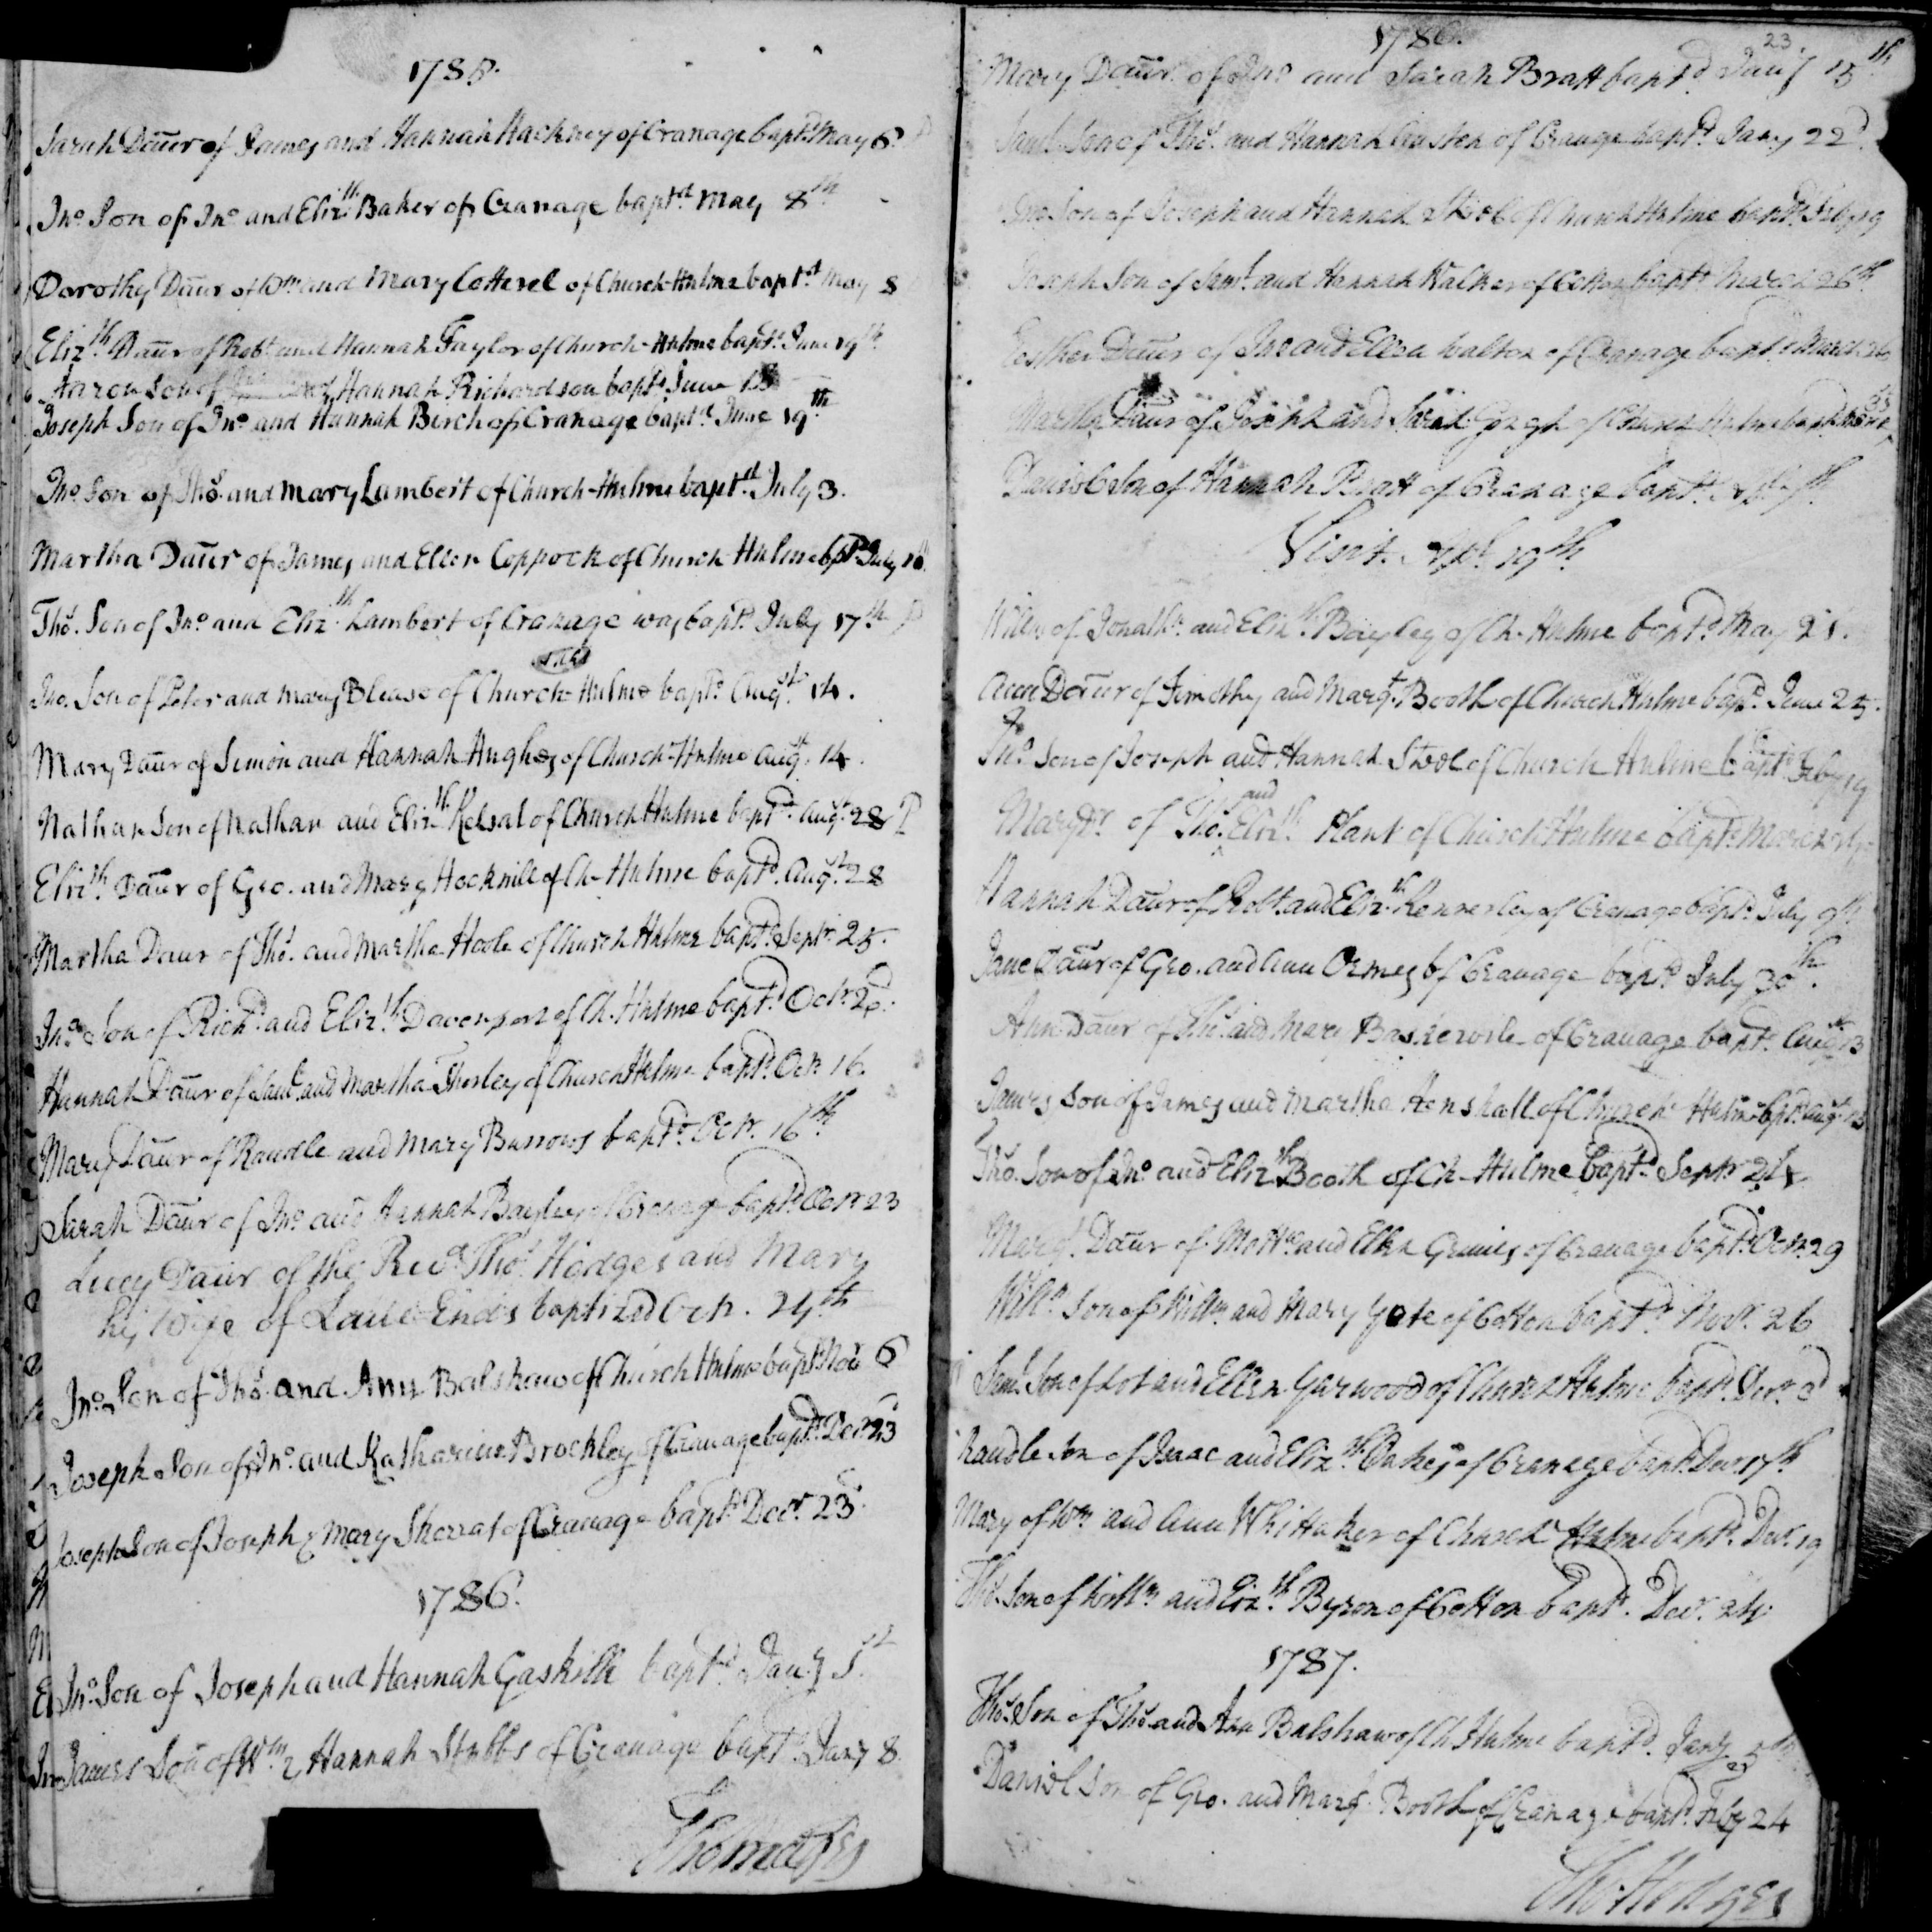 1785.
Sarah Daur of James and Hannah Hackney of Cranage bapt. May 6
Jno Son of Jno and Elizth Baker of Cranage baptd May 8th
Dorothy Daur of Wm and Mary Cotterel of Church-Hulme baptd May 8
Elizth Daur of Robt and Hannah Taylor of Church-Hulme baptd June 19th
Aaron Son of Hannah Richardson baptd June
Joseph Son of Jno and Hannah Birch of Cranage baptd June 19th
Jno Son of Thos. and Mary Lambert of Church-Hulme baptd July 3.
Martha Daur of James and Ellen Coppock of Church Hulme bptd July 10
Thos. Son of Jno and Elizth Lambert of Cranage was baptd July 17th P
Jno. Son of Peter and Mary Blease of Church-Hulme baptd Augst 14.
Mary Daur of Simon and Hannah Hughes of Church-Hulme Augst 14.
Nathan Son of Nathan and Elizth Kelsal of Church Hulme baptd Augst 28 P
Elizth Daur of Geo. and Mary Hocknill of Ch-Hulme baptd. Augst 28
Martha Daur of Thos. and Martha Hoole of Church Hulme baptd Septr 25.
Jno Son of Richd and Elizth Davenport of Ch. Hulme baptd Octr 2d.
Hannah Daur of Saml and Martha of Church Hulme baptd Octr 16.
Mary Daur of Randle and Mary Burrows baptd Octr. 16th
Sarah Daur of Jno and Hannah Bayley of Cranage baptd Octr 23
Lucy Daur of the Revd Thos Hodges and Mary
his Wife of Lane-Ends baptized Octr. 24th
Jno Son of Thos. and Ann Balshaw of Church Hulme baptd Nov 6
Joseph Son of Jno. and Katharine Brockley of Cranage baptd Decr 23
Joseph Son of Joseph & Mary Sherrat of Cranage baptd Decr 23.
1786.
Jno. Son of Joseph and Hannah Gaskill baptd Jany 1st
James Son of Wm & Hannah Stubbs of Cranage baptd Jany 8.
1786.
23.
Mary Daur of Jno and Sarah Bratt baptd Jany 15th
Saml Son of Thos. and Hannah of Cranage baptd Jany 22d.
Jno Son of Joseph and Hannah of Church Hulme baptd Feby 19
Joseph Son of Saml. and Hannah Walker of Cotton baptd March 26th
Esther Daur of Jno and Ellen Walton of Cranage baptd March 26
Martha Daur of Joseph and Sarah of Church Hulme baptd
Son of Hannah Pratt of Cranage baptd.
Visit. Apl 19th
Willm of Jonathn. and Elizth. Bayley of Ch-Hulme baptd May 21.
Ann Daur of Timothy and Margt. Booth of Church Hulme baptd June 25.
Jno Son of Joseph and Hannah Stool of Church Hulme baptd Feby 19
Mary Dr of Thos. and Elizth Plant of Church Hulme baptd March
Hannah Daur of Robt. and Elizth Kennerley of Cranage baptd July 9th
Jane Daur of Geo. and Ann Ormes of Cranage baptd July 30th.
Ann Daur of Thos. and Mary Baskervile of Cranage baptd. Augst 13
James Son of James and Martha Henshall of Church Hulme bptd Augst
Thos. Son of Jno and Elizth Booth of Ch-Hulme baptd Septr 24
Margt. Daur of Matthw and Ellen of Cranage baptd Octr 29
Willm Son of Willm and Mary Yate of Cotton baptd Novr. 26
Saml Son of Lot and Ellen Yarwood of Church Hulme baptd Decr 3d
Randle Son of Isaac and Elizth Oakes of Cranage baptd Decr 17th
Mary of Wm and Ann Whittaker of Church Hulme baptd. Decr. 19
Thos. Son of Willm and Elizth Byron of Cotton baptd. Decr. 24.
1787.
Thos. Son of Thos and Ann Balshaw of Ch Hulme baptd. Jany
Daniel Son of Geo. and Margt. Booth of Cranage baptd Feby 24
Tho. Hodges